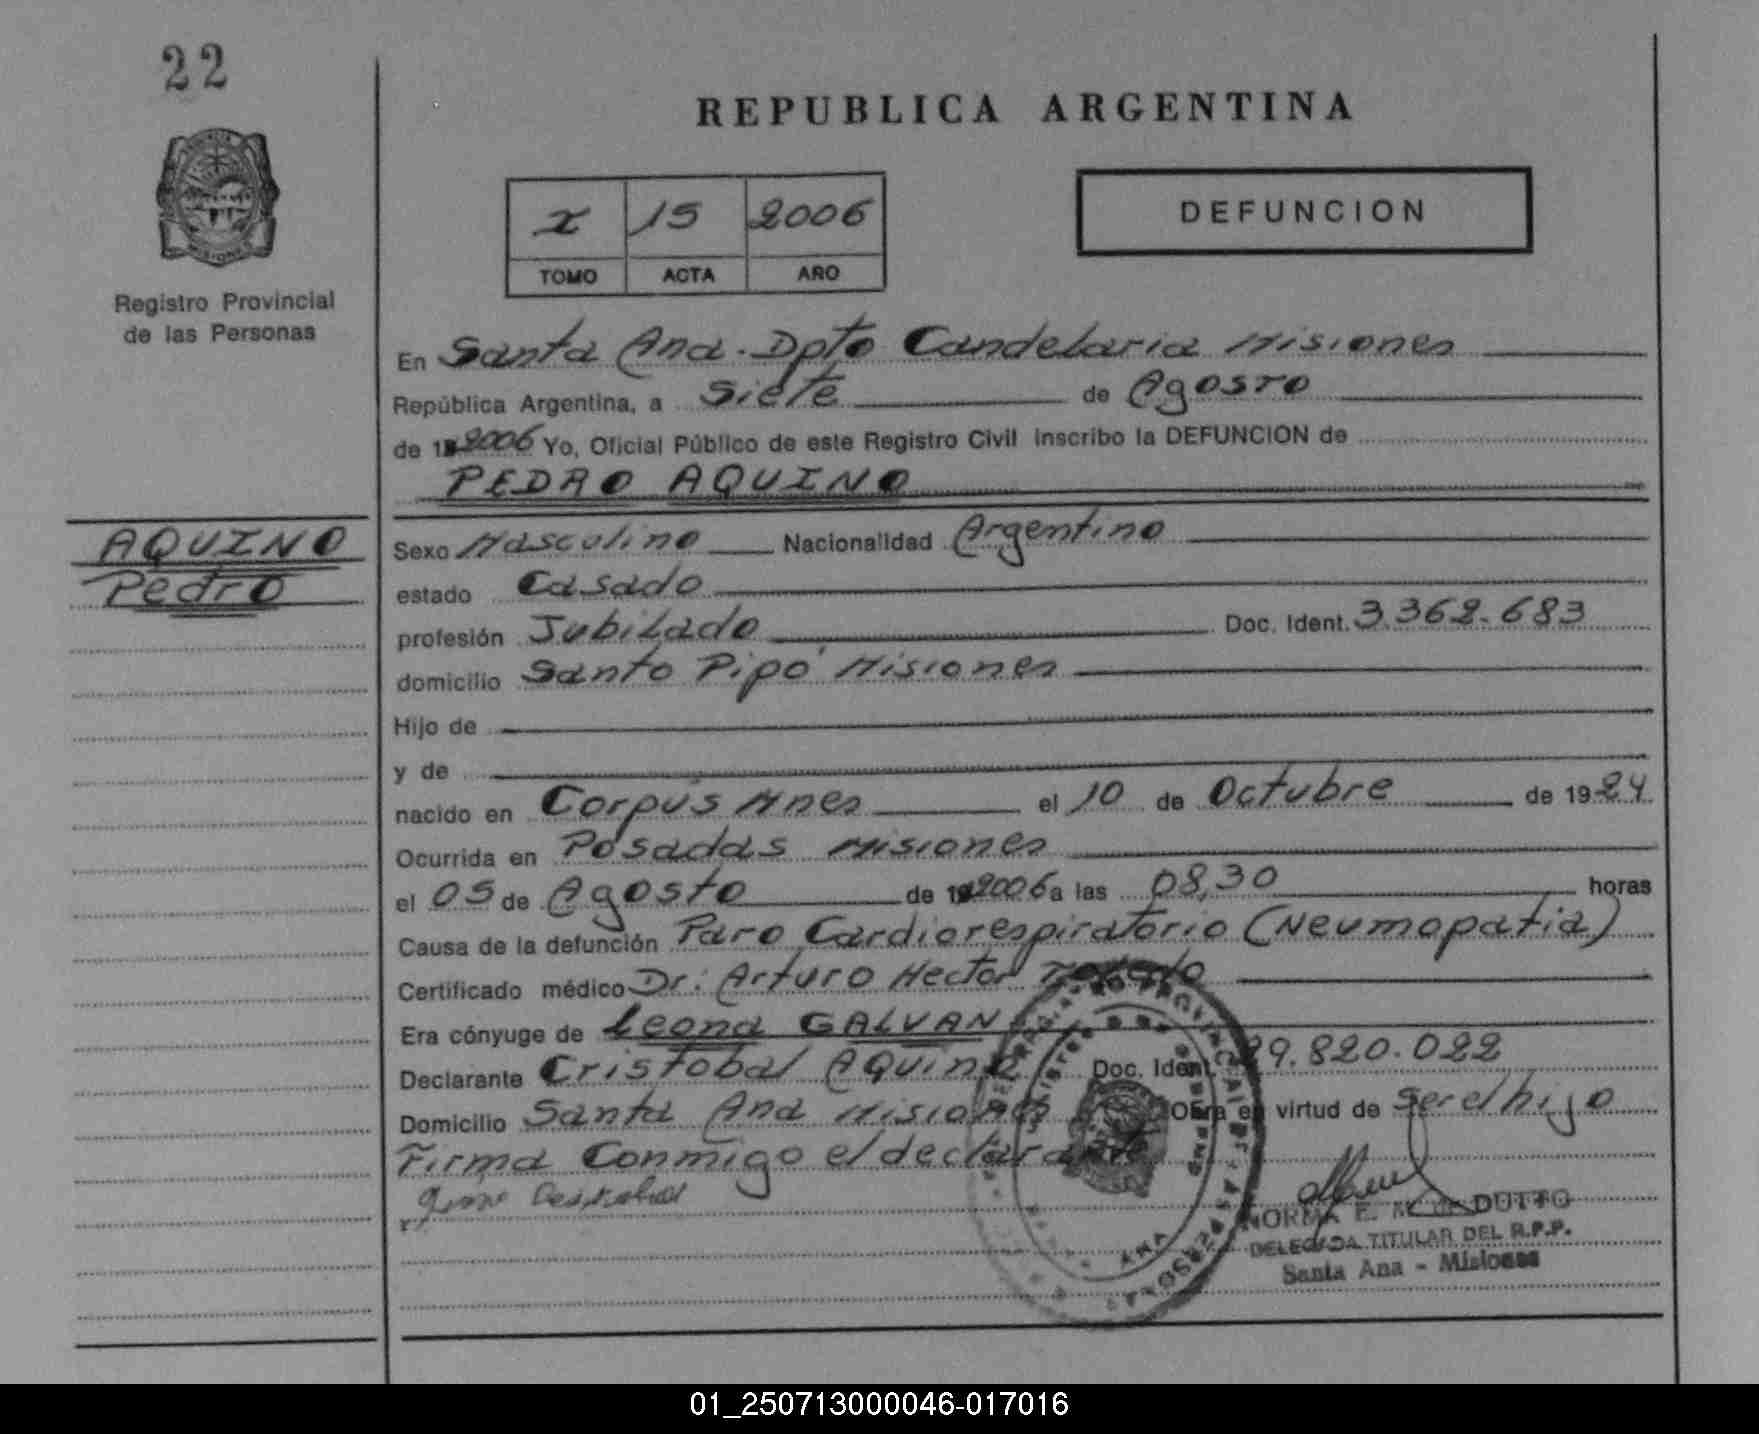 22
REPUBLICA ARGENTINA
DEFUNCION
I 15 2006
TOMO ACTA AÑO
Registro Provincial
de las Personas
En Santa Ana. Dpto Candelaria Misiones
República Argentina, a Siete de Agosto
de 2006 Yo, Oficial Público de este Registro Civil inscribo la DEFUNCION de
PEDRO AQUINO
AQUINO
Pedro
Sexo Masculino Nacionalidad Argentino
estado Casado
profesión Jubilado Doc. Ident. 3.362.683
domicilio Santo Pipó Misiones
Hijo de
y de
nacido en Corpus Mnes el 10 de Octubre de 1924
Ocurrida en Posadas Misiones
el 05 de Agosto de 2006 a las 08,30 horas
Causa de la defunción Paro Cardiorespiratorio (Neumopatia)
Certificado médico Dr: Arturo Hector
Era cónyuge de Leona GALVAN
Declarante Cristobal Aquino Doc. Ident. 29.820.022
Domicilio Santa Ana Misiones Obra en virtud de ser el hijo
Firma Conmigo el declarante
NORMA E. DUTTO
DELEGADA TITULAR DEL R.P.P.
Santa Ana - Misiones
01_250713000046-017016